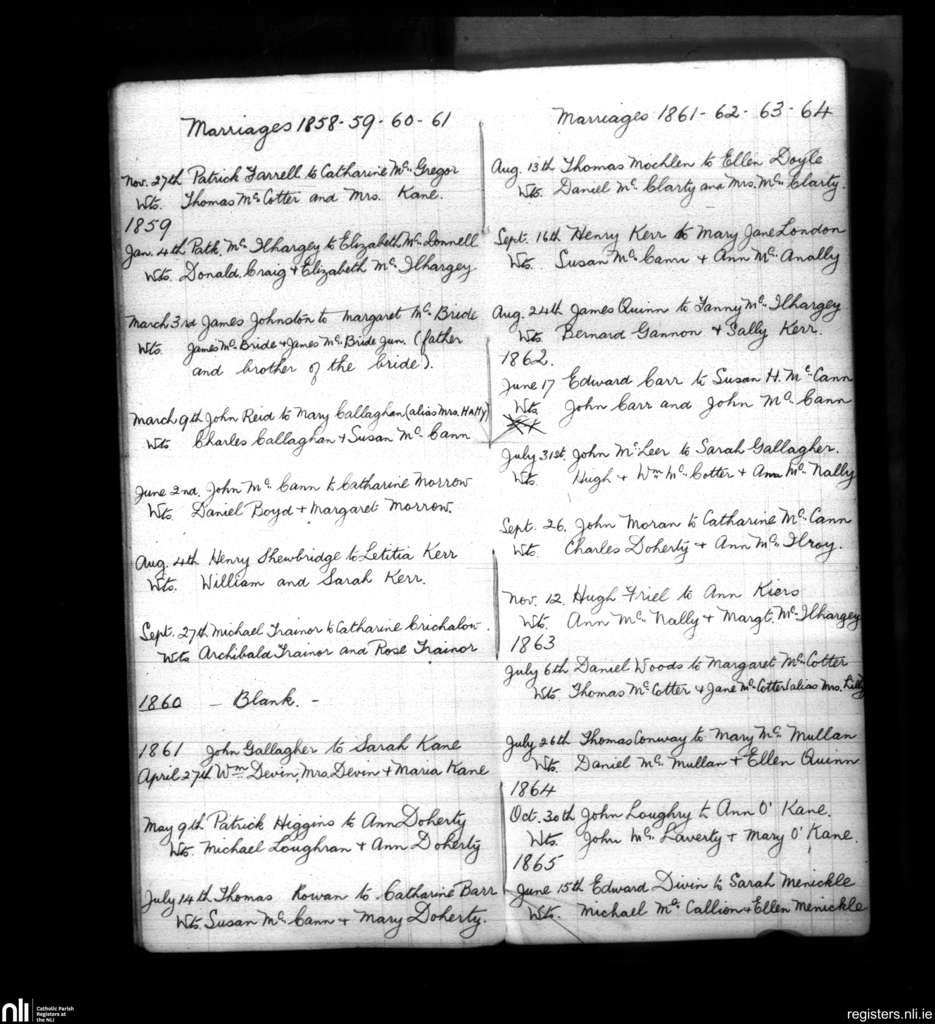 Marriages 1858-59-60-61
Nov. 27th Patrick Farrell to Catharine Mc. Gregor
Wts. Thomas Mc Cotter and Mrs. Kane.
1859
Jan. 4th Patk. Mc. Ilhargey to Elizabeth Mc. Donnell
Wts. Donald Craig + Elizabeth Mc Ilhargey
March 3rd James Johnston to Margaret Mc. Bride
Wts. James Mc. Bride + James Mc. Bride Jun. (father
and brother of the bride).
March 9th John Reid to Mary Callaghan (alias Mrs.
Wts. Charles Callaghan + Susan Mc. Cann
June 2nd. John Mc. Cann to Catharine Morrow
Wts. Daniel Boyd + Margaret Morrow.
Aug. 4th Henry Shewbridge to Letitia Kerr
Wts. William and Sarah Kerr.
Sept. 27th Michael Trainor to Catharine Crichalow.
Wts Archibald Trainor and Rose Trainor
1860 - Blank. -
1861 John Gallagher to Sarah Kane
April 27th Wm Devin, Mrs. Devin + Maria Kane
May 9th Patrick Higgins to Ann Doherty
Wts. Michael Loughran + Ann Doherty
July 14th Thomas Rowan to Catharine Barr
Wts. Susan Mc. Cann + Mary Doherty.
Marriages 1861-62-63-64
Aug. 13th Thomas Mochlen to Ellen Doyle
Wts. Daniel Mc Clarty and Mrs. Mc Clarty.
Sept. 16th Henry Kerr to Mary Jane London
Wts. Susan Mc. Cann + Ann Mc. Anally
Aug. 24th James Quinn to Fanny Mc. Ilhargey
Wts Bernard Gannon + Sally Kerr.
1862.
June 17 Edward Carr to Susan H. Mc. Cann
Wts John Carr and John Mc. Cann
July 31st. John Mc. Leer to Sarah Gallagher.
Wts. Hugh + Wm Mc. Cotter + Ann Mc. Nally
Sept. 26. John Moran to Catharine Mc. Cann
Wts. Charles Doherty + Ann Mc. Ilroy.
Nov. 12. Hugh Friel to Ann Kiers
Wts. Ann Mc. Nally + Margt. Mc. Ilhargey
1863
July 6th Daniel Woods to Margaret Mc. Cotter
Wts. Thomas Mc. Cotter + Jane Mc. Cotter (alias Mrs. Lilly
July 26th Thomas Conway to Mary Mc. Mullan
Wts. Daniel Mc. Mullan + Ellen Quinn
1864
Oct. 30th John Loughry to Ann O' Kane.
Wts. John Mc. Laverty + Mary O' Kane.
1865
June 15th Edward Divin to Sarah Menickle
Wts. Michael Mc. Callion + Ellen Menickle
nli Catholic Parish
Registers at
the NLI
registers.nli.ie